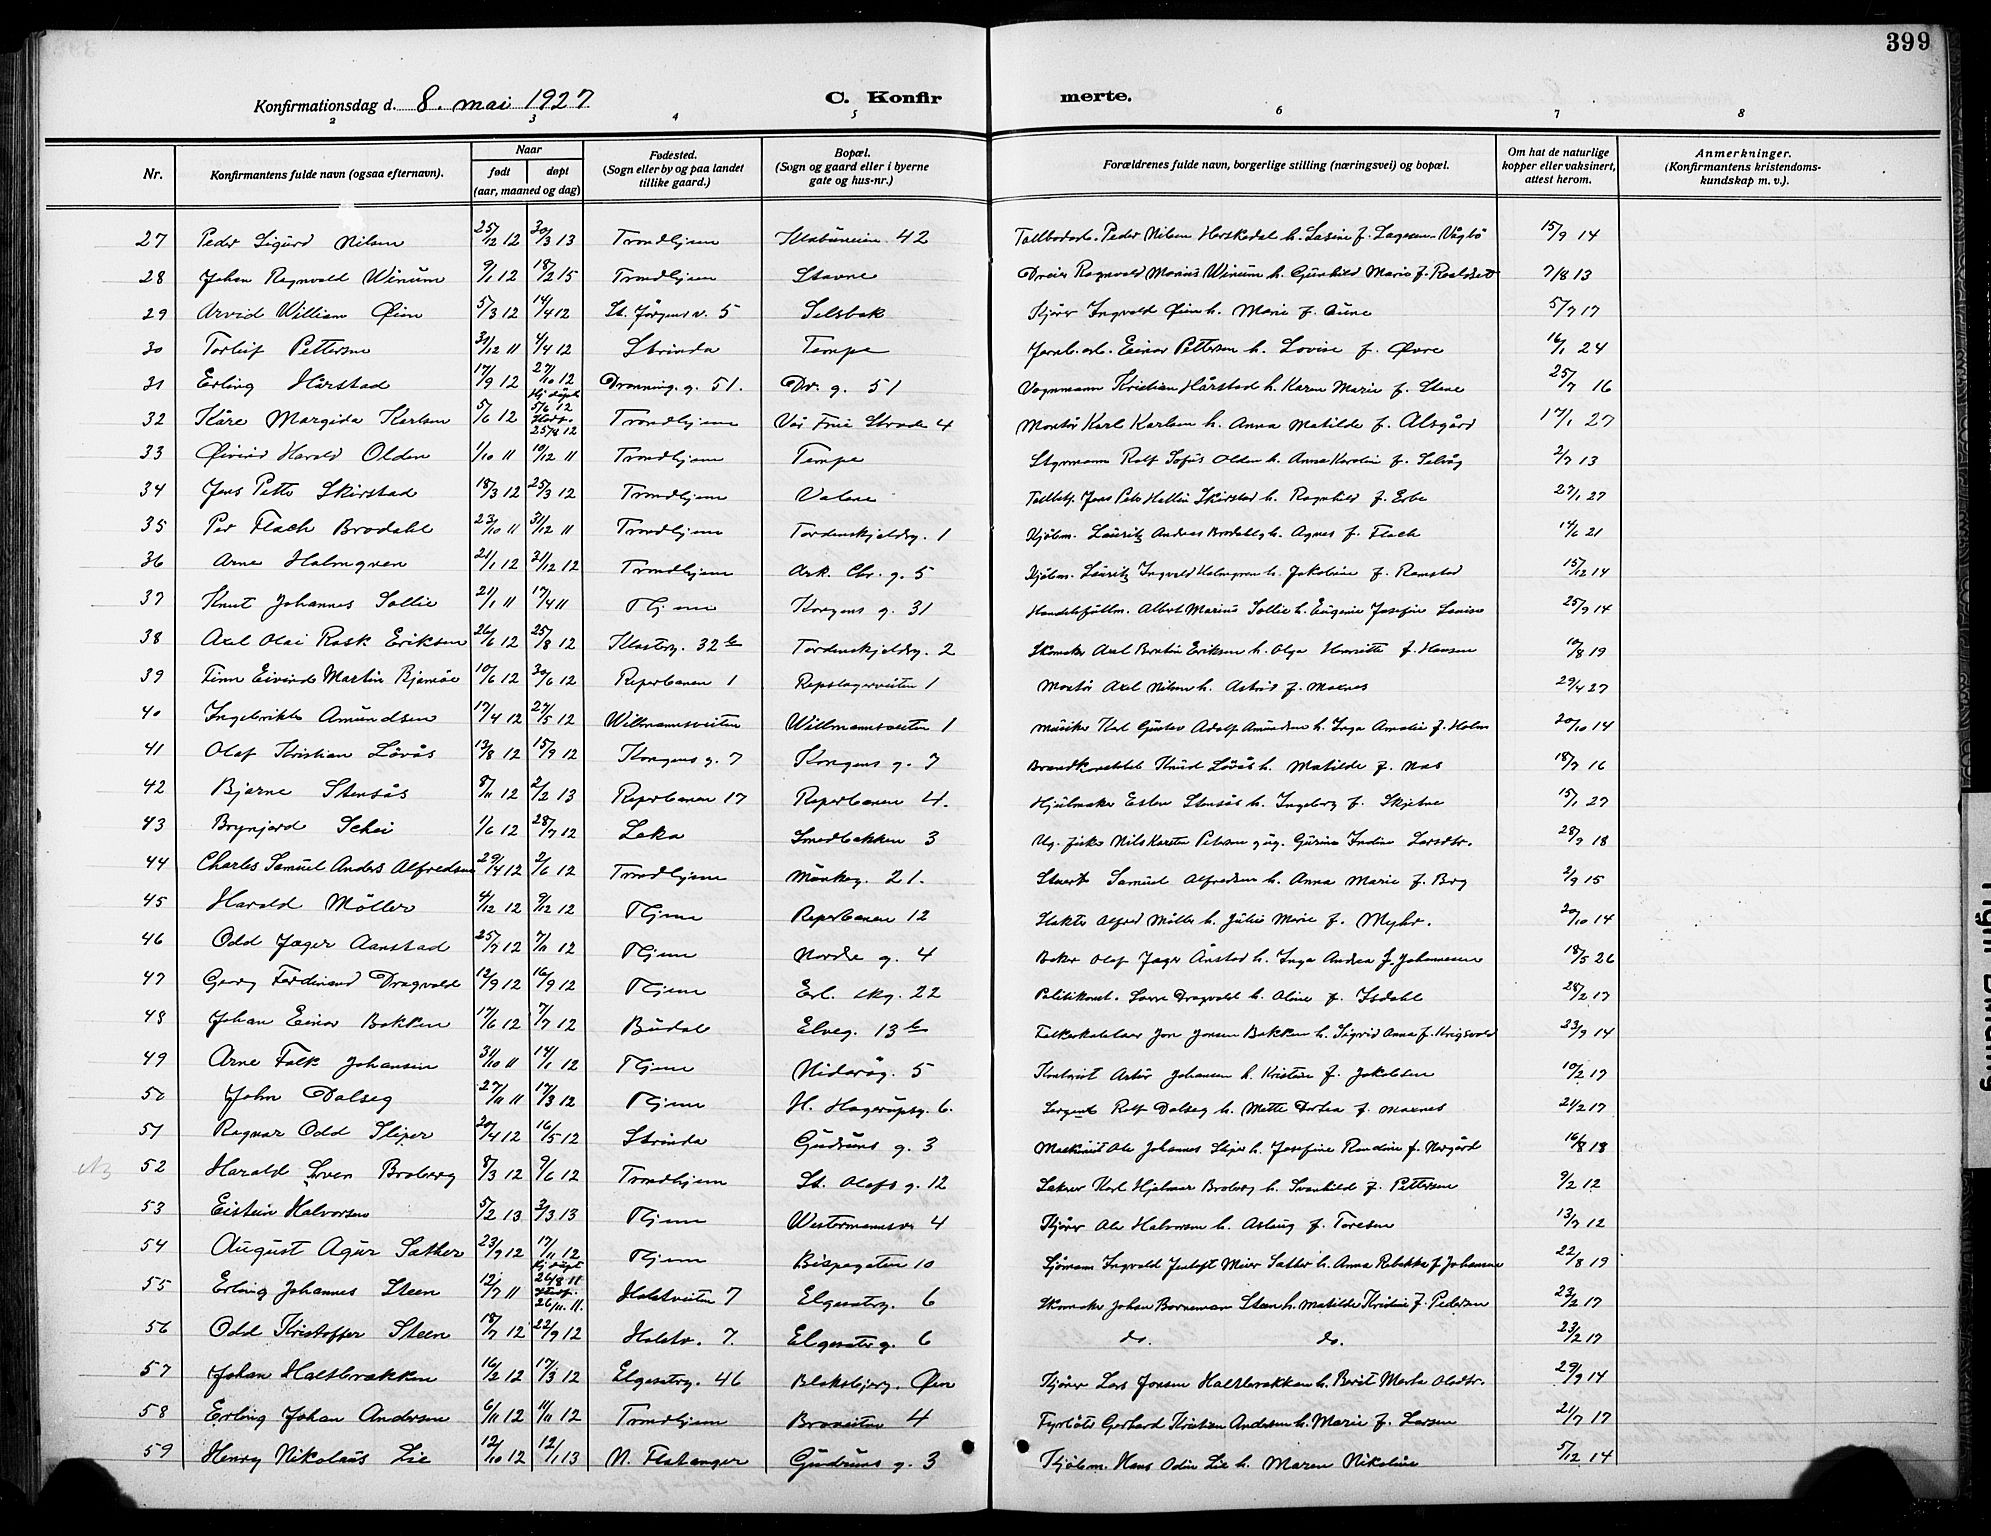 399
Konfirmationsdag d. 8. mai 1927
C. Konfirmerte.
2 3 4 5 6 7 8
Nr.
Konfirmantens fulde navn (ogsaa efternavn).
Naar
født døpt
(aar, maaned og dag)
Fødested.
(Sogn eller by og paa landet
tillike gaard.)
Bopæl.
(Sogn og gaard eller i byerne
gate og hus-nr.)
Forældrenes fulde navn, borgerlige stilling (næringsvei) og bopæl.
Om hat de naturlige
kopper eller vaksinert,
attest herom.
Anmerkninger.
(Konfirmantens kristendoms-
kundskap m. v.).
27 Peder Sigurd Nilsen 25/12 12 30/3 13 Trondhjem 42 Peder Nilsen Herskedal h. 15/9 14
28 Johan Ragnvald Winum 9/1 12 18/2 15 Trondhjem Stavne Dreier Ragnvald Marius Winum h. Gunhild Marie f. 7/8 13
29 Arvid William Øien 5/3 12 14/4 12 St. Jørgens v. 5 Selsbak Kjører Ingvald Øien h. Marie f. Aune 5/7 17
30 Torleif Pettersen 31/12 11 4/4 12 Strinda Tempe Jernb. arb. Einar Pettersen h. Lovise f. Øvre 16/1 24
31 Erling Hårstad 17/9 12 27/10 12 Dronning. g. 51. Dr. g. 51 Vognmann Kristian Hårstad h. Karen Marie f. Stene 25/7 16
32 Kåre Margido Karlsen 5/6 12 Hj. døpt 5/6 12 Stadf. 25/8 12 Trondhjem Vår Frue Stræde 4 Montør Karl Karlsen h. Anna Matilde f. Alsgård 17/1 27
33 Øivind Harald Olden 1/10 11 10/12 11 Trondhjem Tempe Styrmann Rolf Sofus Olden h. Anna Karolin f. Selvåg 2/7 13
34 Jens Petter Skirstad 18/3 12 25/3 12 Trondhjem Jens Peter Hallin Skirstad h. Ragnhild f. 27/1 27
35 Per Flach Brodahl 23/10 11 31/12 11 Trondhjem Tordenskjoldsg. 1 Kjøbm. Lauritz Andreas Brodahl h. Agnes f. Flach 14/6 21
36 Arne Holmgren 21/1 12 21/12 12 Trondhjem Ark. Chr. g. 5 Kjøbm. Lauritz Ingvald Holmgren h. Jakobine f. Ramstad 15/12 14
37 Knut Johannes Sollie 21/1 11 17/4 11 Thjem Kongens g. 31 Handelsfullm. Albert Marius Sollie h. Eugenie Josefine 25/9 14
38 Axel Olai Rask Eriksen 26/6 12 25/8 12 Klosterg. 32 b Tordenskjoldsg. 2 Skomaker Axel Eriksen h. Olga Henriette f. Hansen 10/8 19
39 Finn Eivind Martin Bjarnøe 10/6 12 30/6 12 Reperbanen 1 Repslagerveiten 1 Montør Axel Nilsen h. Astrid f. Moxnes 29/4 27
40 Ingebrikt Amundsen 17/4 12 27/5 12 Willmannsveiten Willmannsveiten 1 Musiker Karl Gustav Adolf Amundsen h. Inga Amalie f. Holm 20/10 14
41 Olaf Kristian Løvås 13/8 12 15/9 12 Kongens g. 7 Kongens g. 7 Brandkonstabel Knud Løvås h. Matilde f. Nas 18/7 16
42 Bjarne Stensås 8/11 12 2/2 13 Reperbanen 17 Reperbanen 4. Hjulmaker Esten Stensås h. Ingeborg f. Skjetne 15/1 27
43 Brynjard Schei 1/6 12 28/7 12 Leka Smedbakken 3 Ug. fisker Nils Karsten Petersen og ug. Gurine Indine Larsdtr. 28/9 18
44 Charles Samuel Anders Alfredsen 29/4 12 2/6 12 Trondhjem Munkeg. 21. Stuert Samuel Alfredsen h. Anna Marie f. Berg 2/9 15
45 Harald Möller 4/12 12 9/12 12 Thjem Reperbanen 12 Slakter Alfred Møller h. Julie Marie f. Myhr. 20/10 14
46 Odd Jæger Aanstad 25/7 12 7/11 12 Thjem Nordre g. 4 Baker Olaf Jæger Ånstad h. Inga Andrea f. Johannesen 18/5 26
47 Georg Ferdinand Dragvold 12/9 12 16/9 12 Thjem Erl. skg. 22 Politikonst. Dragvold h. f. Isdahl 28/2 17
48 Johan Einar Bakken 17/6 12 7/7 12 Budal Elveg. 13 b Folkeskolelærer Jon Jonsen Bakken h. Sigrid Anna f. Krigsvold 23/9 14
49 Arne Falk Johansen 31/10 11 14/1 12 Thjem Nidarøg. 5 Astor Johansen h. Kristine f. Jakobsen 10/2 17
50 John Dalseg 27/11 11 17/3 12 Thjem H. Hagerupsg. 6. Sergeant Rolf Dalseg h. Mette Dortea f. Moxnes 21/2 17
51 Ragnar Odd Sliper 20/4 12 16/5 12 Strinda Gudruns g. 3 Maskinist Ole Johannes Sliper h. Josefine Randine f. Norgård 16/8 18
52 Harald Sven Broberg 8/3 12 9/6 12 Trondhjem St. Olafs g. 12 Karl Hjalmar Broberg h. Svanhild f. Pettersen 9/2 12
53 Eistein Halvorsen 5/2 13 2/3 13 Thjem Westermannsv. 4 Kjører Ole Halvorsen h. Aslaug f. Toresen 13/7 12
54 August Agur Sæther 23/9 12 17/11 12 Thjem Bispegaten 10 Sjømann Ingvald Jentoft Meier Sæther h. Anna Rebekka f. Johansen 22/8 19
55 Erling Johannes Steen 12/7 11 Hj. døpt 26/8 11 Stadf. 26/11 11. Holstveiten 7 Elgesæterg. 6 Skomaker Johan Bornemann Steen h. Matilde Kristine f. Pedersen 23/2 17
56 Odd Kristoffer Steen 18/7 12 22/9 12 Holstv. 7. Elgesæter g. 6 do. do. 23/2 17
57 Johan Haltbrækken 16/2 12 17/3 12 Elgesæterg. 46 Blaksbjerg. Øien Kjører Lars Jonsen Haltbrækken h. Berit Marta Olsdtr. 29/9 14
58 Erling Johan Andersen 6/11 12 11/11 12 Trondhjem Broveiten 4 Fyrbøter Gerhard Kristian Andersen h. Marie f. Larsen 21/7 17
59 Henry Nikolaus Lie 12/10 12 12/1 13 N. Flatanger Gudruns g. 3 Kjøbm. Hans Odin Lie h. Maren Nikoline 5/12 14